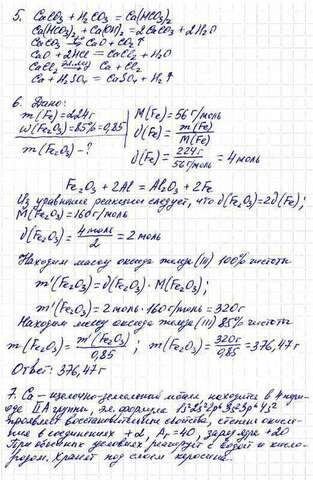 5. CaCO₃ + H₂CO₃ = Ca(HCO₃)₂
Ca(HCO₃)₂ + Ca(OH)₂ = 2CaCO₃ + 2H₂O
CaCO₃ = CaO + CO₂↑
CaO + 2HCl = CaCl₂ + H₂O
CaCl₂ = Ca + Cl₂
Ca + H₂SO₄ = CaSO₄ + H₂↑
6. Дано:
m(Fe) = 224г
W(Fe₂O₃) = 85% = 0,85
m(Fe₂O₃) - ?
M(Fe) = 56 г/моль
ν(Fe) = m(Fe) / M(Fe)
ν(Fe) = 224г / 56г/моль = 4 моль
Fe₂O₃ + 2Al = Al₂O₃ + 2Fe
Из уравнения реакции следует, что ν(Fe₂O₃)=2ν(Fe);
M(Fe₂O₃) = 160г/моль
ν(Fe₂O₃) = 4 моль / 2 = 2 моль
Находим массу оксида железа (III) 100% чистоты
m'(Fe₂O₃) = ν(Fe₂O₃) · M(Fe₂O₃);
m'(Fe₂O₃) = 2 моль · 160 г/моль = 320г
Находим массу оксида железа (III) 85% чистоты
m(Fe₂O₃) = m'(Fe₂O₃) / 0,85; m(Fe₂O₃) = 320г / 0,85 = 376,47г
Ответ: 376,47г
7. Ca - щелочно-земельный металл, находится в 4 пери-
оде II А группы, эл. формула 1s²2s²2p⁶3s²3p⁶4s²
проявляет восстановительные свойства, степень окисле-
ния в соединениях +2, Ar = 40, заряд ядра +20
При обычных условиях реагирует с водой и кисло-
родом. Хранят под слоем керосина.